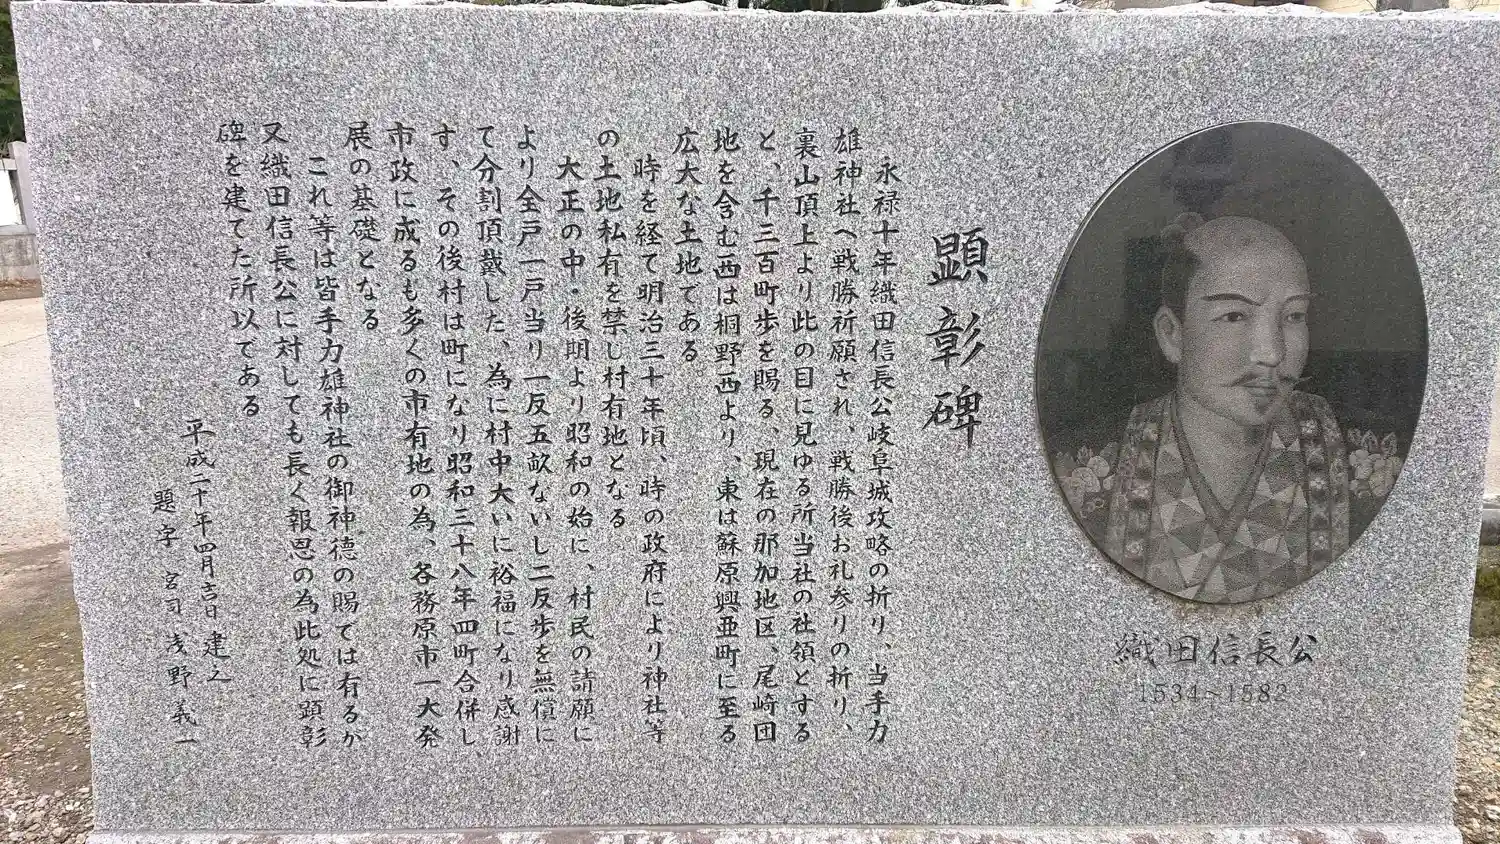 顕彰碑
永禄十年織田信長公岐阜城攻略の折り、当手力
雄神社へ戦勝祈願され、戦勝後お礼参りの折り、
裏山頂上より此の目に見ゆる所当社の社領とする
と、千三百町歩を賜る、現在の那加地区、尾崎団
地を含む西は桐野西より、東は蘇原興亜町に至る
広大な土地である
時を経て明治三十年頃、時の政府により神社等
の土地私有を禁じ村有地となる
大正の中・後期より昭和の始に、村民の請願に
より全戸一戸当り一反五畝ないし二反歩を無償に
て分割頂戴した、為に村中大いに裕福になり感謝
す、その後村は町になり昭和三十八年四町合併し、
市政に成るも多くの市有地の為、各務原市一大発
展の基礎となる
これ等は皆手力雄神社の御神徳の賜ては有るか
又織田信長公に対しても長く報恩の為此処に顕彰
碑を建てた所以である
平成二十年四月吉日 建之
題字 宮司 浅野義一
織田信長公
1534~1582